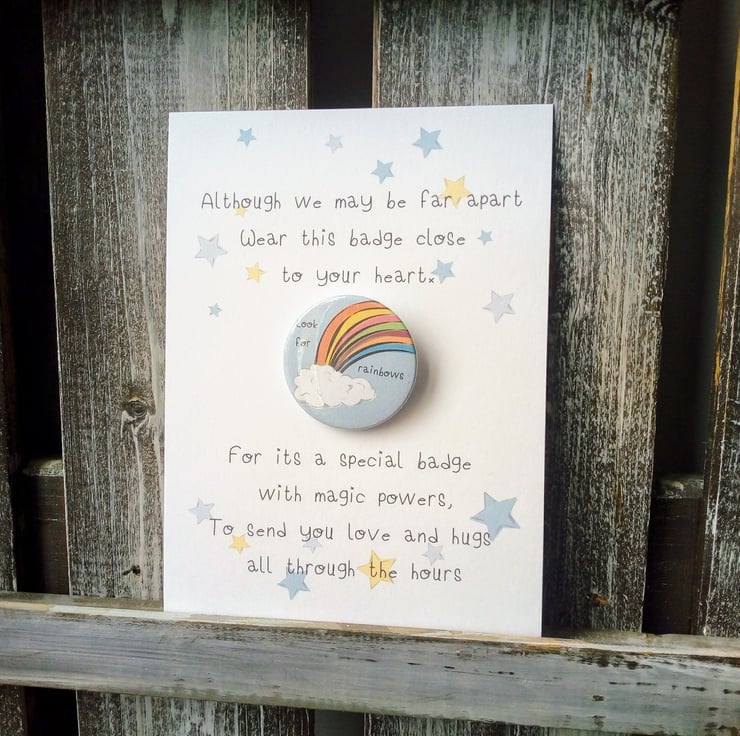 Although we may be far apart
Wear this badge close
to your heart x
Look
for
rainbows
For its a special badge
with magic powers,
To send you love and hugs
all through the hours